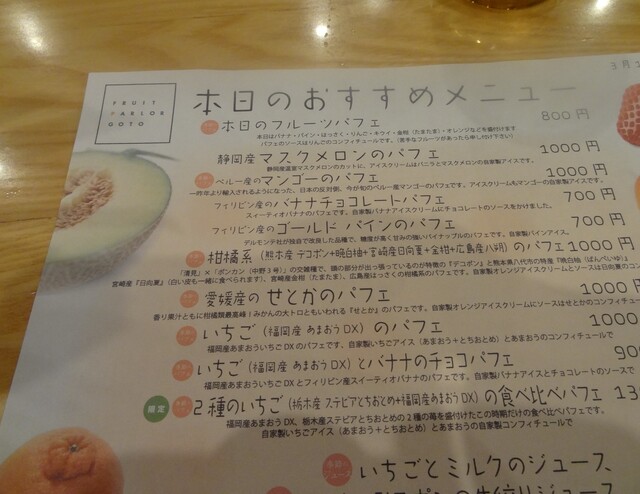 FRUIT
PARLOR
GOTO
本日のおすすめメニュー
3月
本日のフルーツパフェ 800円
本日はバナナ・パイン・はっさく・りんご・キウイ・金柑(たまたま)・オレンジなどを盛付けます
パフェのソースはりんごのコンフィチュールです。(苦手なフルーツがあったら申し付け下さい)
静岡産 マスクメロンのパフェ 1000円
静岡産温室マスクメロンのカットに、アイスクリームはバニラとマスクメロンの自家製アイスです。
ペルー産のマンゴーのパフェ 1000円
一昨年より輸入されるようになった、日本の反対側、今が旬のペルー産マンゴーのパフェです。アイスクリームもマンゴーの自家製アイスです。
フィリピン産のバナナチョコレートパフェ 700円
スィーティオバナナのパフェです。自家製バナナアイスクリームにチョコレートのソースをかけました。
フィリピン産のゴールドパインのパフェ 700円
デルモンテ社が独自で改良した品種で、糖度が高く甘みの強いパイナップルのパフェです。自家製パインアイス。
柑橘系(熊本産 デコポン+晩白柚+宮崎産日向夏+金柑+広島産八朔)のパフェ 1000円
「清見」×「ポンカン(中野3号)の交雑種で、頭の部分が出っ張っているのが特徴の「デコポン」と熊本県八代市の特産「晩白柚(ばんぺいゆ)」
宮崎産『日向夏』(白い皮も一緒に食べられます)、宮崎産金柑(たまたま)、広島産はっさくの柑橘系のパフェです。自家製オレンジアイスクリームとソースは日向夏のコン
愛媛産の せとかのパフェ 1000
香り果汁ともに柑橘類最高峰!みかんの大トロともいわれる『せとか』のパフェです。自家製オレンジアイスクリームにソースはせとかのコンフィチュー
いちご(福岡産 あまおうDX)のパフェ 1000
福岡産あまおういちごDXのパフェです、自家製いちごアイス(あまおう+とちおとめ)とあまおうのコンフィチュールで
いちご(福岡産 あまおうDX)とバナナのチョコパフェ 900
福岡産あまおういちごDXとフィリピン産スイーティオバナナのパフェです。自家製バナナアイスとチョコレートのソースで
限定 2種のいちご(栃木産 ステビアとちおとめ+福岡産あまおうDX)の食べ比べパフェ 13
福岡産あまおうDX、栃木産ステビアとちおとめの2種の苺を盛付けたこの時期だけの食べ比べパフェです。
自家製いちごアイス(あまおう+とちおとめ)とあまおうのコンフィチュールで
いちごとミルクのジュース、